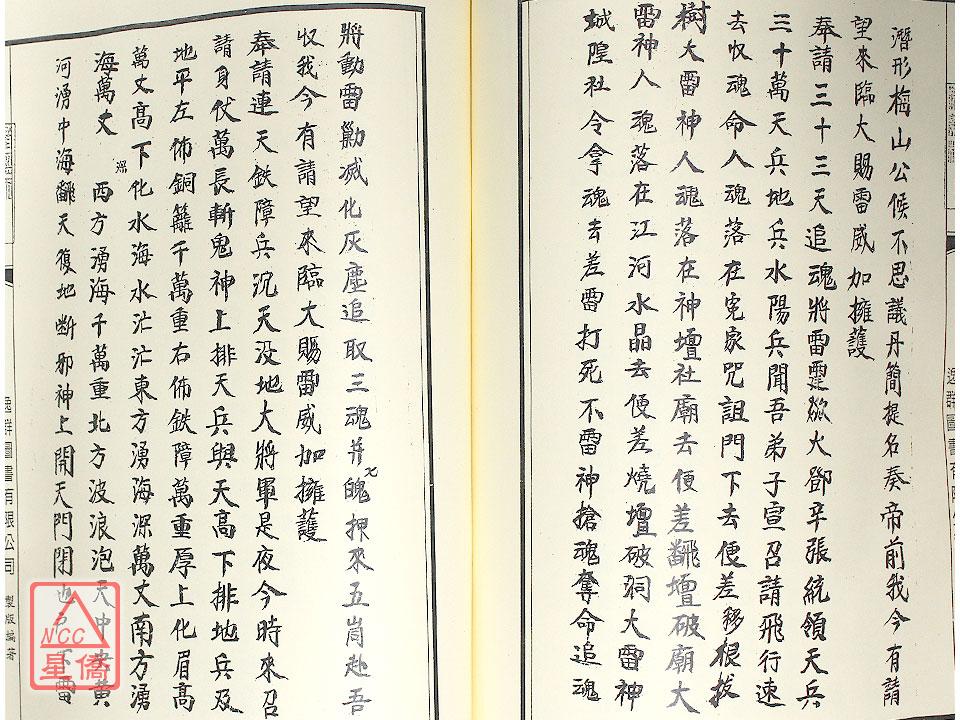 潛形梅山公候不思議丹簡提名奏帝前我今有請
望來臨大賜雷威加擁護
奉請三十三天追魂將雷霆欻火鄧辛張統領天兵
三十萬天兵地兵水陽兵聞吾弟子宣召請飛行速
去収魂命人魂落在冤家咒詛門下去便差移根拔
樹大雷神人魂落在神壇社廟去便差翻壇破廟大
雷神人魂落在江河水晶去便差燒壇破洞大雷神
城隍社令拿魂去差雷打死不雷神搶魂奪命追魂
將動雷勦滅化灰塵追取三魂并七魄押來五崗赴吾
収我今有請望來臨大賜雷威加擁護
奉請連天鉄障兵沉天没地大將軍是夜今時來召
請身伏萬長斬鬼神上排天兵與天高下排地兵及
地平左佈銅籬千萬重右佈鉄障萬重厚上化眉高
萬丈高下化水海水茫茫東方湧海深萬丈南方湧
海萬丈深西方湧海千萬重北方波浪泡天中央黄
河湧中海翻天復地断邪神上開天門閉下雷
逸群圖書有限公司 製版編著
逸群圖書有限公
NCC
星僑